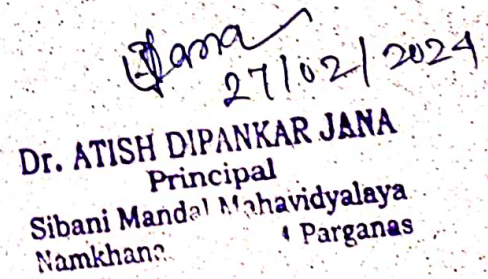 Jana
27/02/2024
Dr. ATISH DIPANKAR JANA
Principal
Sibani Mandal Mahavidyalaya
Namkhana Parganas